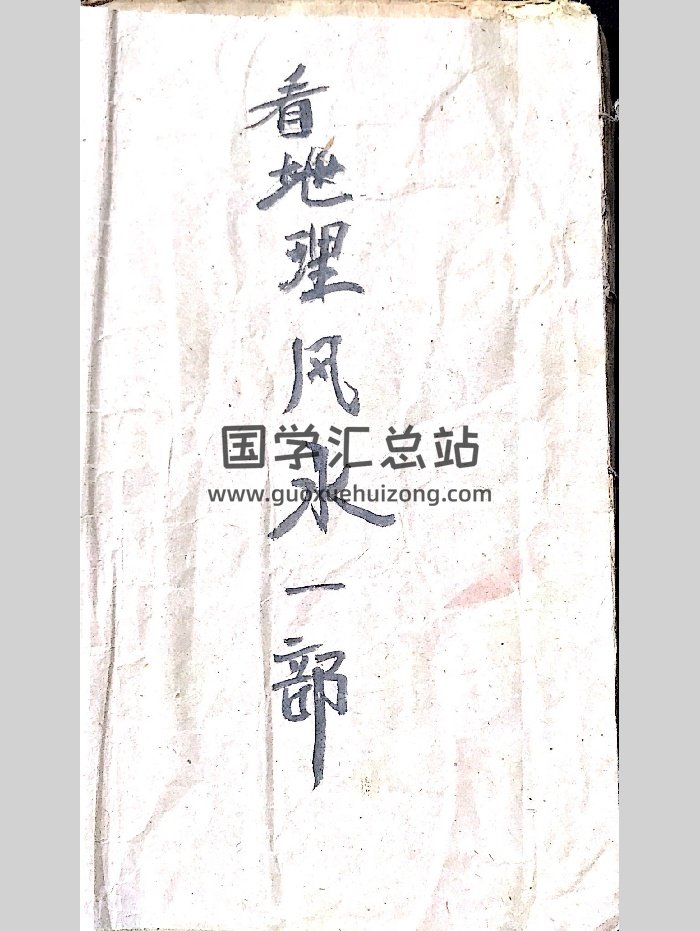 看地理风水一部
国学汇总站
www.guoxuehuizong.com